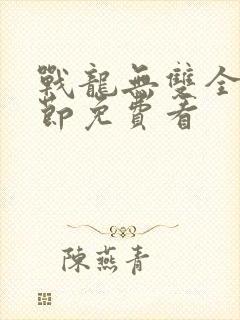 戰龍無雙全
節免費看
陳燕青